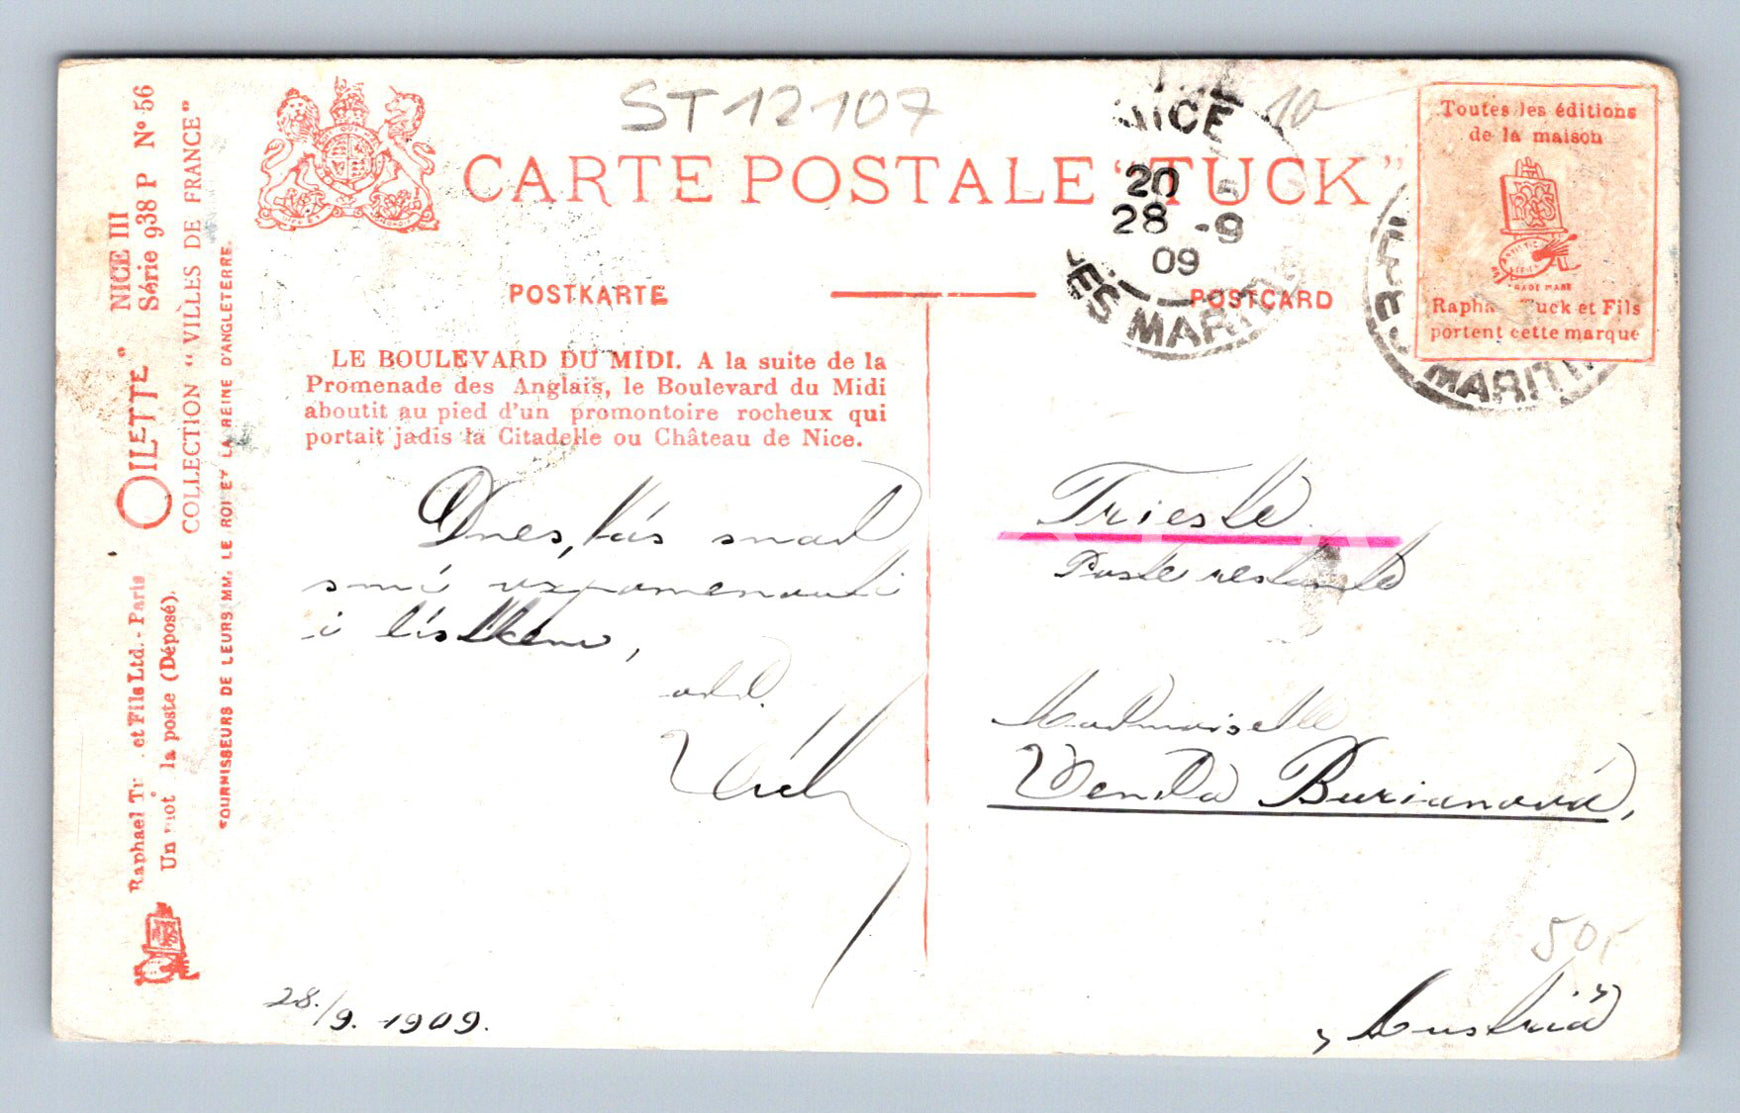 ST12107
10-
CARTE POSTALE "TUCK"
POSTKARTE
POSTCARD
Toutes les éditions
de la maison
TRADE MARK
Rapha Tuck et Fils
portent cette marque
NICE
20
28 -9
09
ES MARITIM
ES MARITIM
NICE III
Série 938 P Nº 56
"OILETTE"
COLLECTION "VILLES DE FRANCE"
Raphael Tu et Fils Ltd.- Paris
Un mot la poste (Déposé).
FOURNISSEURS DE LEURS MM. LE ROI ET LA REINE D'ANGLETERRE.
LE BOULEVARD DU MIDI. A la suite de la
Promenade des Anglais, le Boulevard du Midi
aboutit au pied d'un promontoire rocheux qui
portait jadis la Citadelle ou Château de Nice.
Dnes, Vás snad
smí vzpomenouti
i lístkem,
odd.
28./9. 1909.
Trieste
Poste restante
Madmoiselle
Venda Burianová,
50,-
Austria